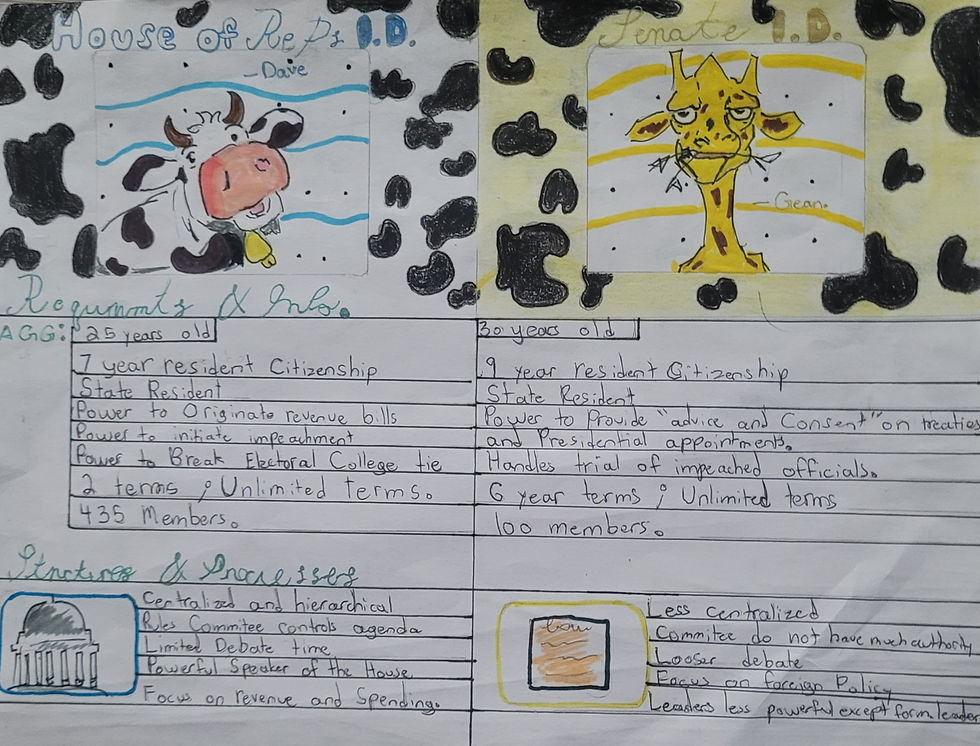 House of Reps I.D.
- Dave
Senate I.D.
- Gean.
Requmnts & Info.
AGG: 25 years old
7 year resident Citizenship
State Resident
Power to Originate revenue bills
Power to initiate impeachment
Power to Break Electoral College tie
2 terms ; Unlimited terms.
435 Members.
30 years old
9 year resident Citizenship
State Resident
Power to Provide "advice and Consent" on treaties
and Presidential appointments.
Handles trial of impeached officials.
6 year terms ; Unlimited terms
100 members.
Strctures & Processes
Centralized and hierarchical
Rules Commitee controls agenda
Limited Debate time
Powerful Speaker of the House
Focus on revenue and Spending.
Less centralized
Commitee do not have much authority
Looser debate
Focus on foreign Policy
Leaders less powerful except form. leader